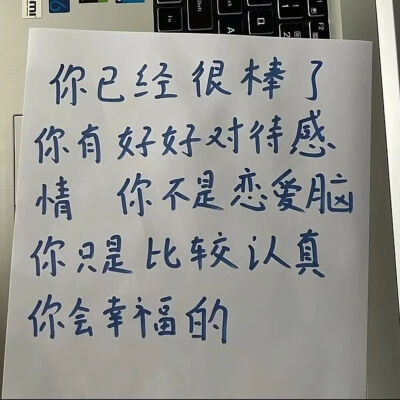 你已经很棒了
你有好好对待感
情 你不是恋爱脑
你只是比较认真
你会幸福的